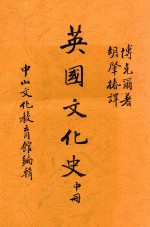 傅克爾著
胡肇椿譯
英國文化史
中冊
中山文化教育館編輯